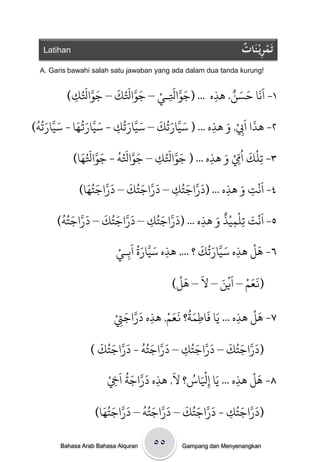 Latihan
تَمْرِيْنَاتٌ
A. Garis bawahi salah satu jawaban yang ada dalam dua tanda kurung!
١- اَنَا حَسَنٌ. هذِه ... (جَوَّالَتِـيْ – جَوَّالَتُكَ – جَوَّالَتُكِ)
٢- هذَا اَبِيْ. وَ هذِه ... ( سَيَّارَتُكَ – سَيَّارَتُكِ - سَيَّارَتُهَا - سَيَّارَتُهُ)
٣- تِلْكَ اُمِّيْ وَ هذِه ... ( جَوَّالَتُكِ – جَوَّالَتُهُ - جَوَّالَتُهَا)
٤- اَنْتِ وَ هذِه ... (دَرَّاجَتُكِ – دَرَّاجَتُكَ – دَرَّاجَتُهَا)
٥- اَنْتَ تِلْمِيْذٌ وَ هذِه ... (دَرَّاجَتُكِ – دَرَّاجَتُكَ – دَرَّاجَتُهُ)
٦- هَلْ هذِه سَيَّارَتُكَ ؟ ...، هذِه سَيَّارَةُ اَبِـيْ
(نَعَمْ – اَيْنَ – لاَ – هَلْ)
٧- هَلْ هذِه ... يَا فَاطِمَةُ؟ نَعَمْ، هذِه دَرَّاجَتِيْ
(دَرَّاجَتُكَ – دَرَّاجَتُكِ – دَرَّاجَتُهُ - دَرَّاجَتُكَ )
٨- هَلْ هذِه ... يَا إِلْيَاسُ؟ لاَ، هذِه دَرَّاجَةُ اَخِيْ
(دَرَّاجَتُكِ - دَرَّاجَتُكَ – دَرَّاجَتُهُ – دَرَّاجَتُهَا)
Bahasa Arab Bahasa Alquran ٥٥ Gampang dan Menyenangkan